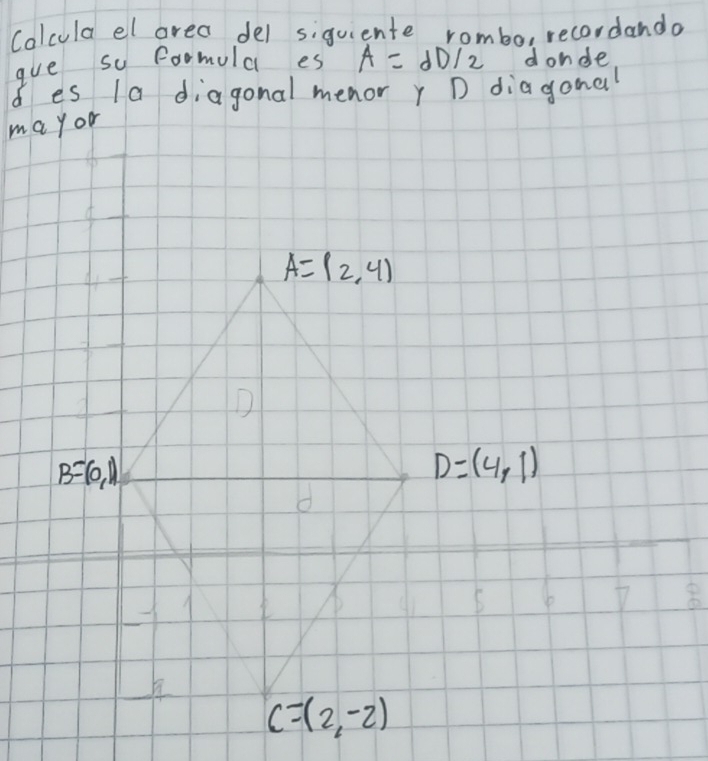 Calcula el area del siguiente rombo, recordando
que su formula es A = dD/2 donde
d es la diagonal menor y D diagonal
mayor
6
5
4
A=(2,4)
3
2
D
B=(0,1)
D=(4,1)
d
1 2 3 4 5 6 7 8
C=(2,-2)